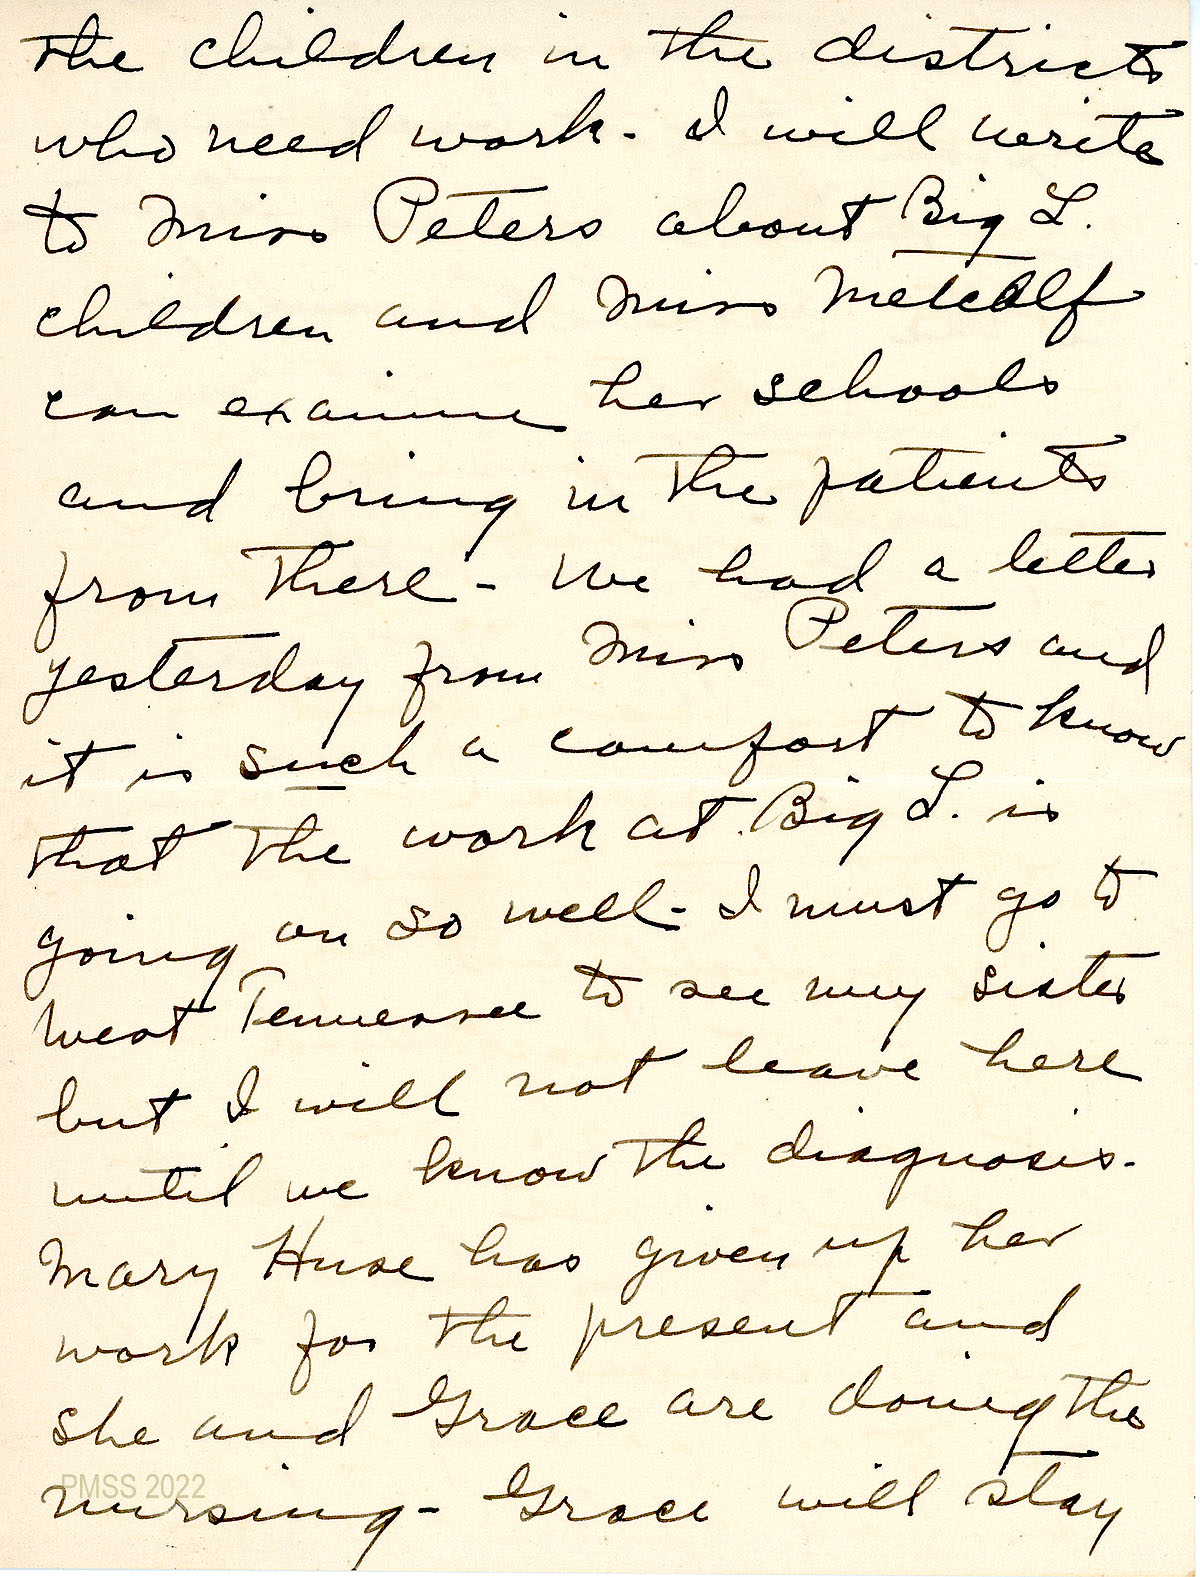 the children in the districts
who need work - I will write
to Miss Peters about Big L.
children and Miss Metcalf
can examine her schools
and bring in the patients
from there - We had a letter
yesterday from Miss Peters and
it is such a comfort to know
that the work at Big L. is
going on so well - I must go to
West Tennessee to see my sister
but I will not leave here
until we know the diagnosis.
Mary Huse has given up her
work for the present and
she and Grace are doing the
PMSS 2022
nursing - Grace will stay